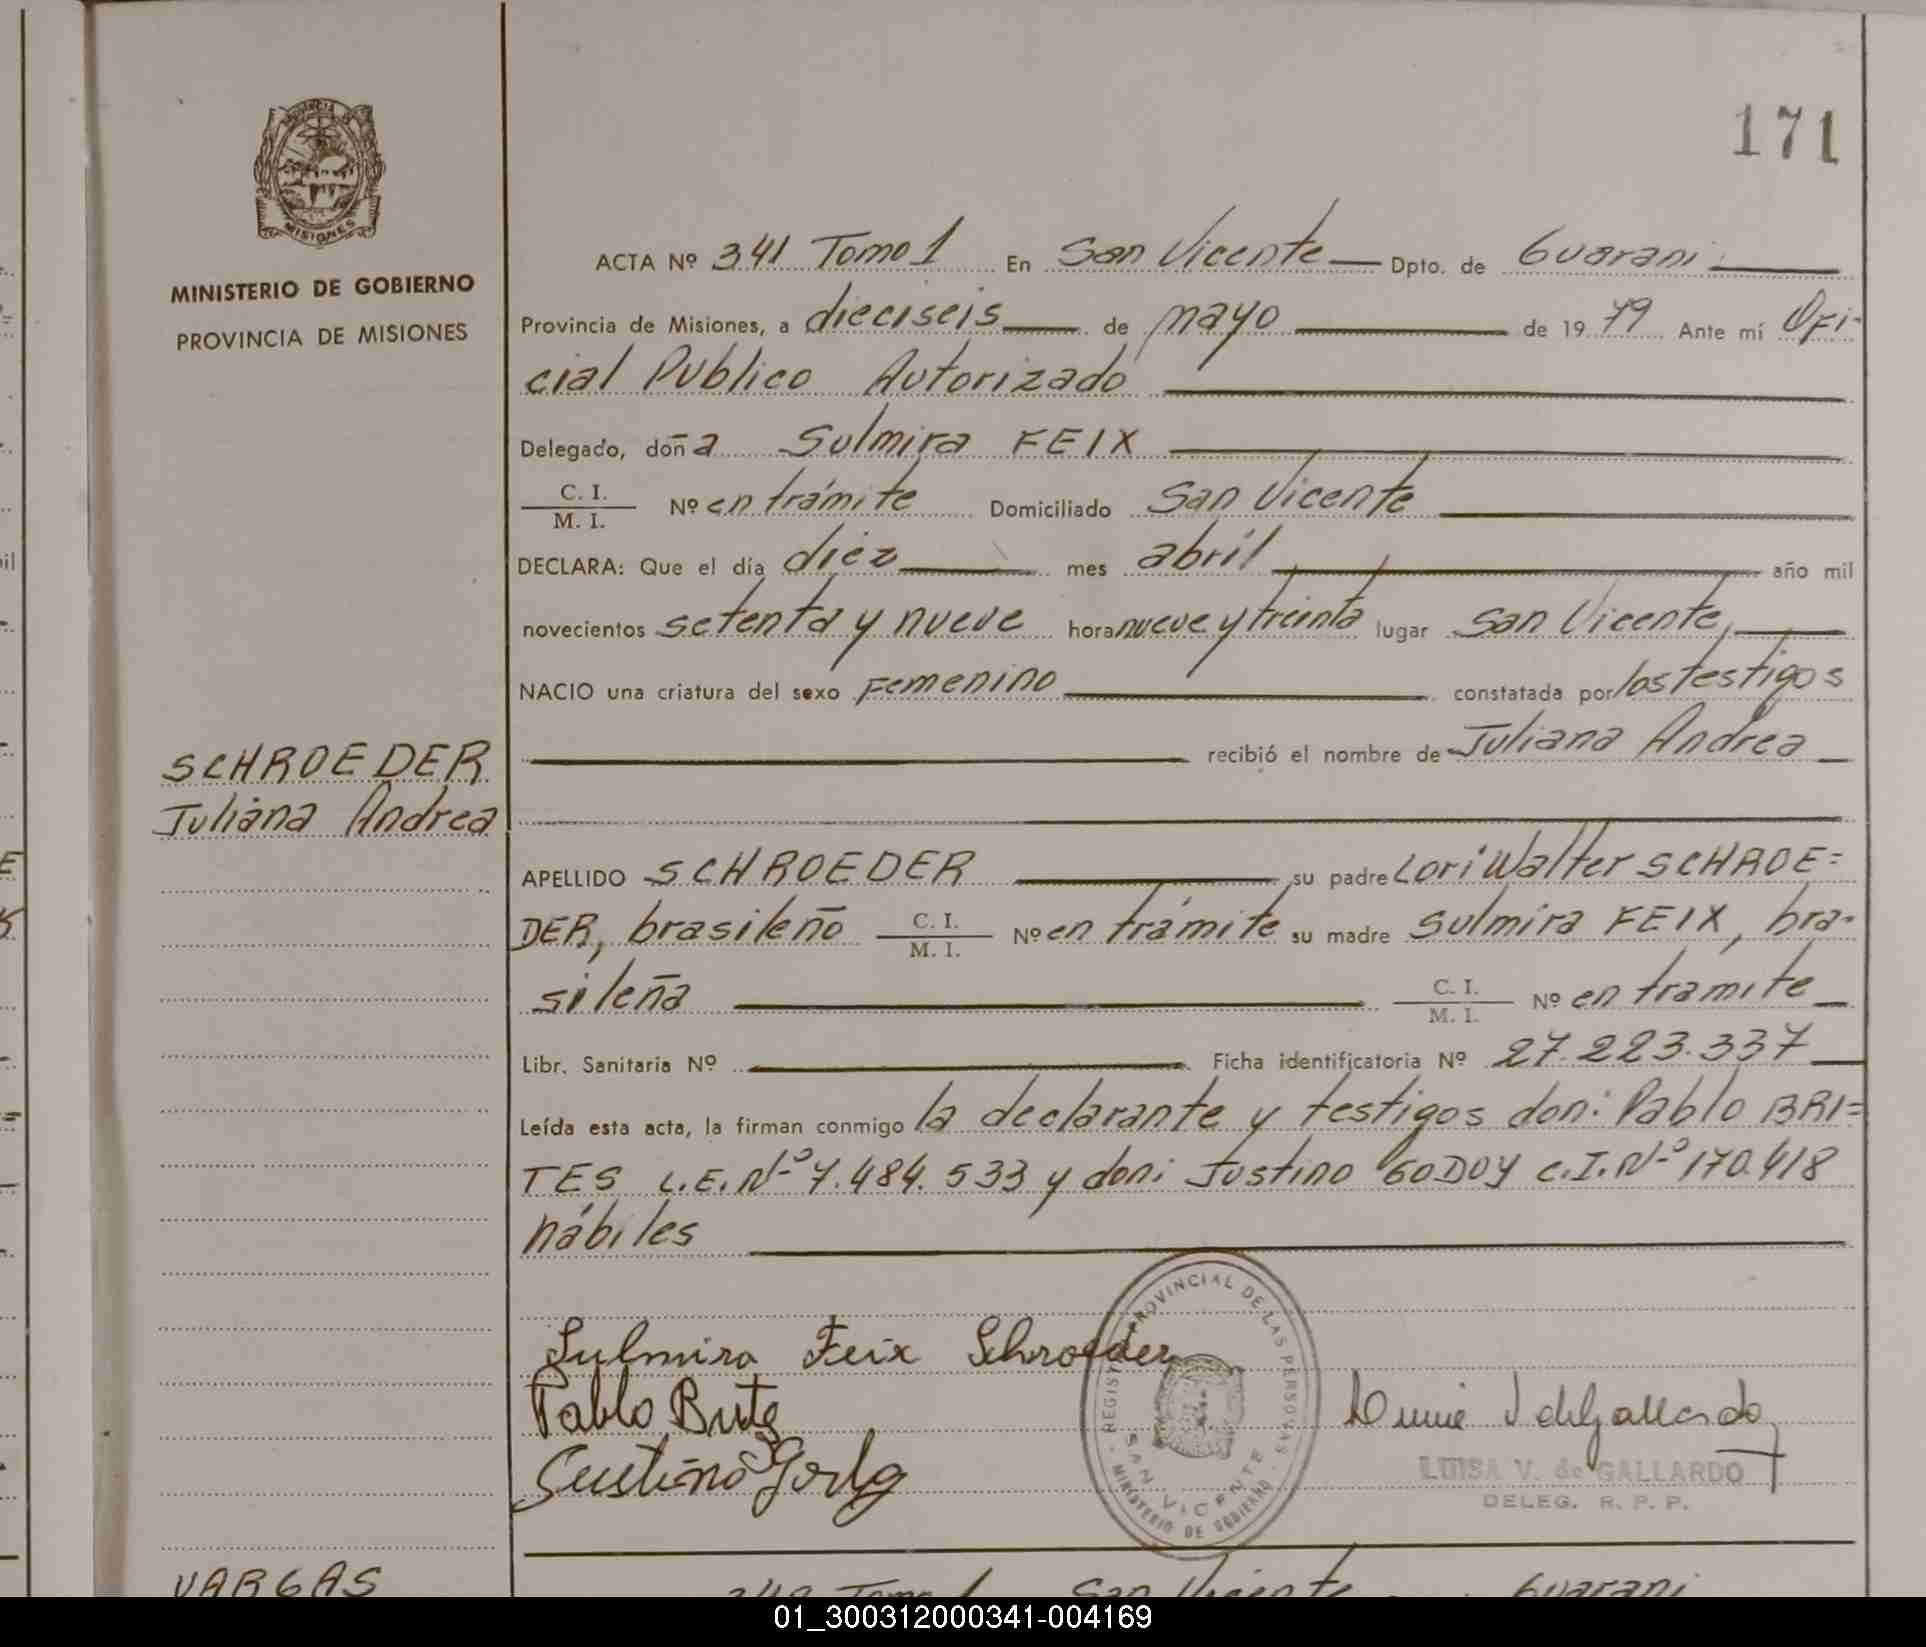 171
MISIONES
MINISTERIO DE GOBIERNO
PROVINCIA DE MISIONES
SCHROEDER
Juliana Andrea
ACTA Nº 341 Tomo 1 En San Vicente Dpto. de Guarani
Provincia de Misiones, a dieciseis de mayo de 1979 Ante mí Ofi-
cial Publico Autorizado
Delegado, doña Sulmira FEIX
C. I.
M. I. Nº en trámite Domiciliado San Vicente
DECLARA: Que el día diez mes abril año mil
novecientos setenta y nueve hora nueve y treinta lugar San Vicente,
NACIO una criatura del sexo Femenino constatada por los testigos
recibió el nombre de Juliana Andrea
APELLIDO SCHROEDER su padre Lori Walter SCHROE=
DER, brasileño C. I. M. I. Nº en trámite su madre Sulmira FEIX, bra-
sileña C. I. M. I. Nº en tramite
Libr. Sanitaria Nº Ficha identificatoria Nº 27.223.337
Leída esta acta, la firman conmigo la declarante y testigos don: Pablo BRI=
TES L.E. Nº 7.484.533 y don: Justino GODOY C.I. Nº 170.418
hábiles
Sulmira Feix Schroeder
Pablo Brite
Justino
REGISTRO PROVINCIAL DE LAS PERSONAS
SAN VICENTE
MINISTERIO DE GOBIERNO
LUISA V. de GALLARDO
DELEG. R. P. P.
VARGAS
342 Tomo 1 San Vicente Guarani
01_300312000341-004169